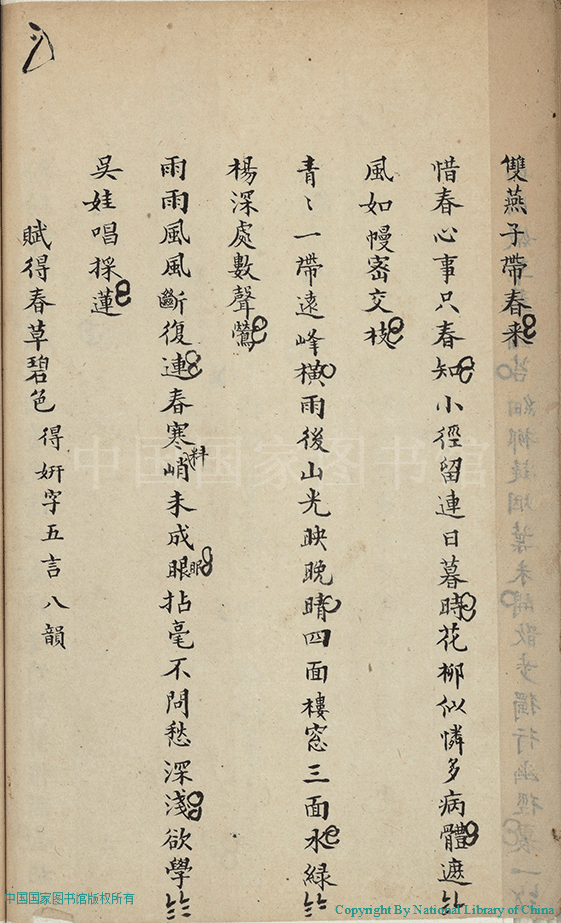 雙燕子帶春来
惜春心事只春知小徑留連日暮時花柳似憐多病體遮
風如幔密交枝
青〻一帶遠峰橫雨後山光映晚晴四面樓窓三面水綠
楊深處數聲鶯
雨雨風風斷復連春寒峭料未成眼眠拈毫不問愁深淺欲學
吳娃唱採蓮
賦得春草碧色 得妍字五言八韻
中国国家图书馆
中国国家图书馆版权所有
Copyright By National Library of China